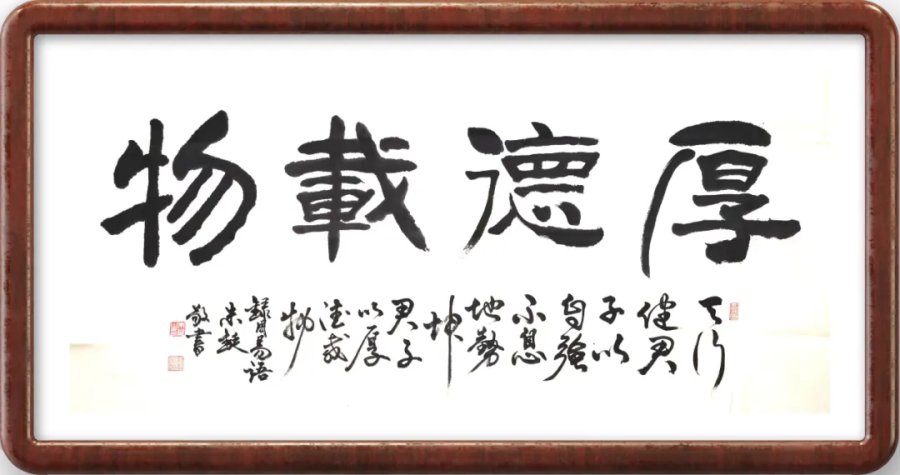 厚德載物
天行
健君
子以
自強
不息
地勢
坤
君子
以厚
德載
物
錄周易語
朱
敬書